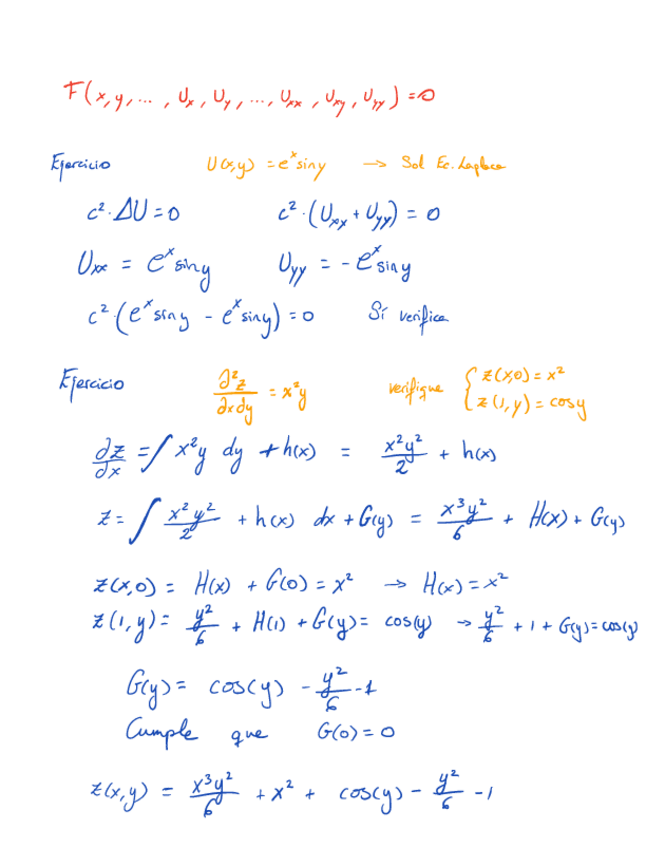 F(x, y, ... , Ux , Uy , ... , Uxx , Uxy , Uyy) = 0
Ejercicio U(x,y) = e^x siny → Sol Ec. Laplace
c²·ΔU = 0 c²·(Uxx + Uyy) = 0
Uxx = e^x siny Uyy = - e^x siny
c²·(e^x siny - e^x siny) = 0 Sí verifica
Ejercicio ∂²z/∂x∂y = x²y verifique { z(x,0) = x²
z(1,y) = cosy
∂z/∂x = ∫ x²y dy + h(x) = x²y²/2 + h(x)
z = ∫ x²y²/2 + h(x) dx + G(y) = x³y²/6 + H(x) + G(y)
z(x,0) = H(x) + G(0) = x² → H(x) = x²
z(1,y) = y²/6 + H(1) + G(y) = cos(y) → y²/6 + 1 + G(y) = cos(y)
G(y) = cos(y) - y²/6 - 1
Cumple que G(0) = 0
z(x,y) = x³y²/6 + x² + cos(y) - y²/6 - 1